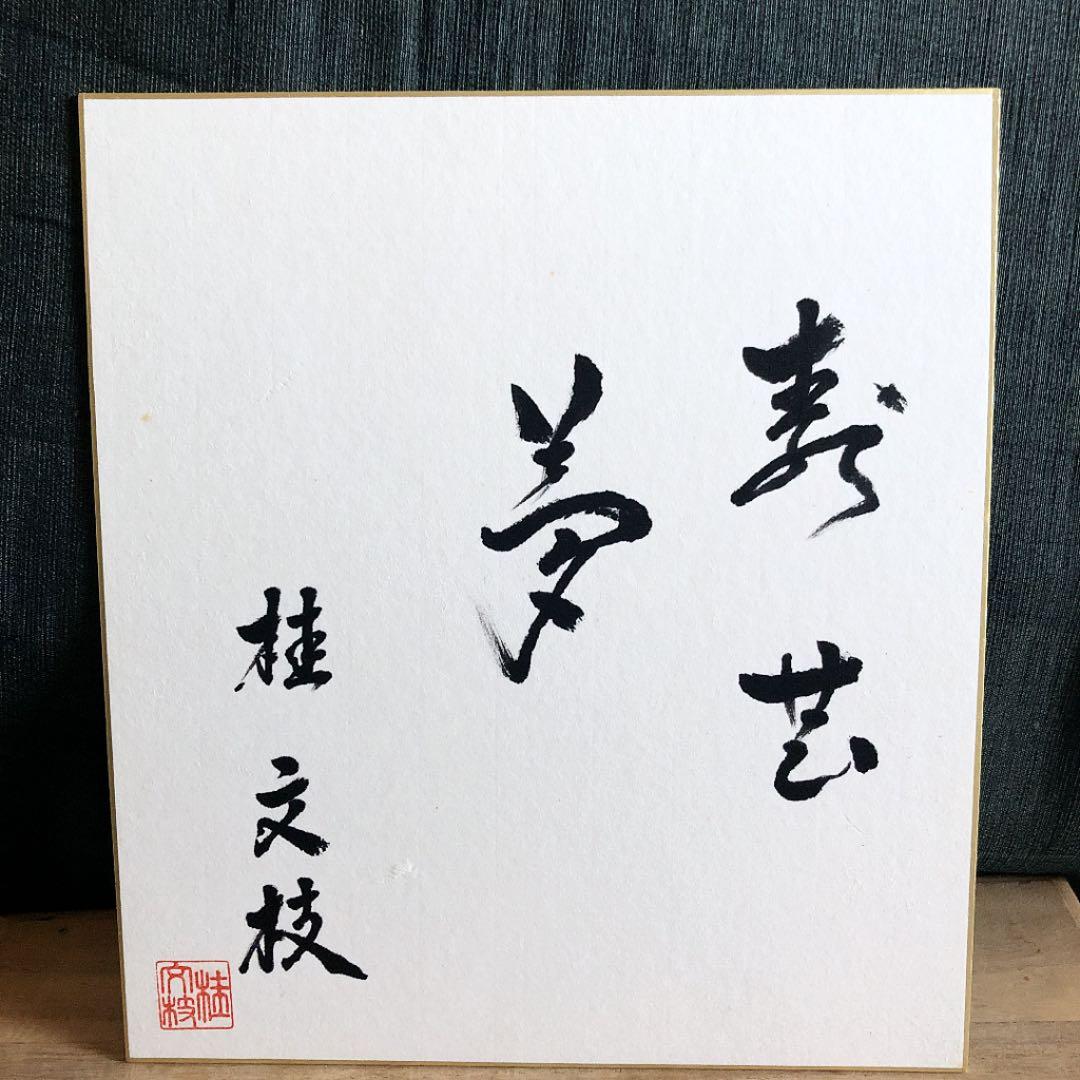 寿芸
夢
桂文枝
桂文枝